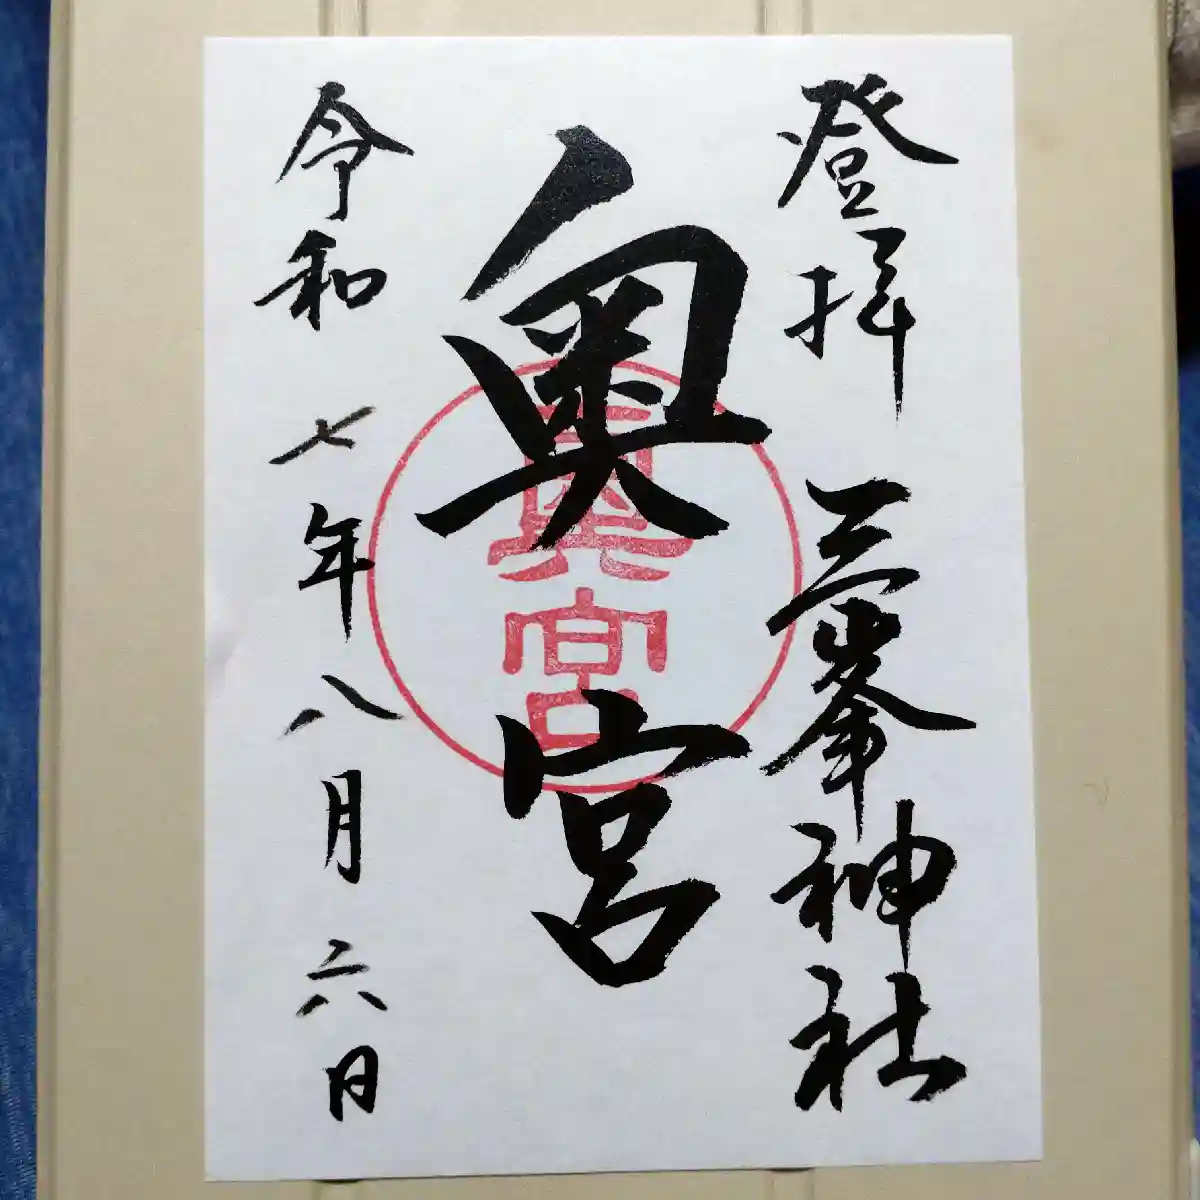 登拝 三峯神社
奥宮
奥宮
令和七年八月六日